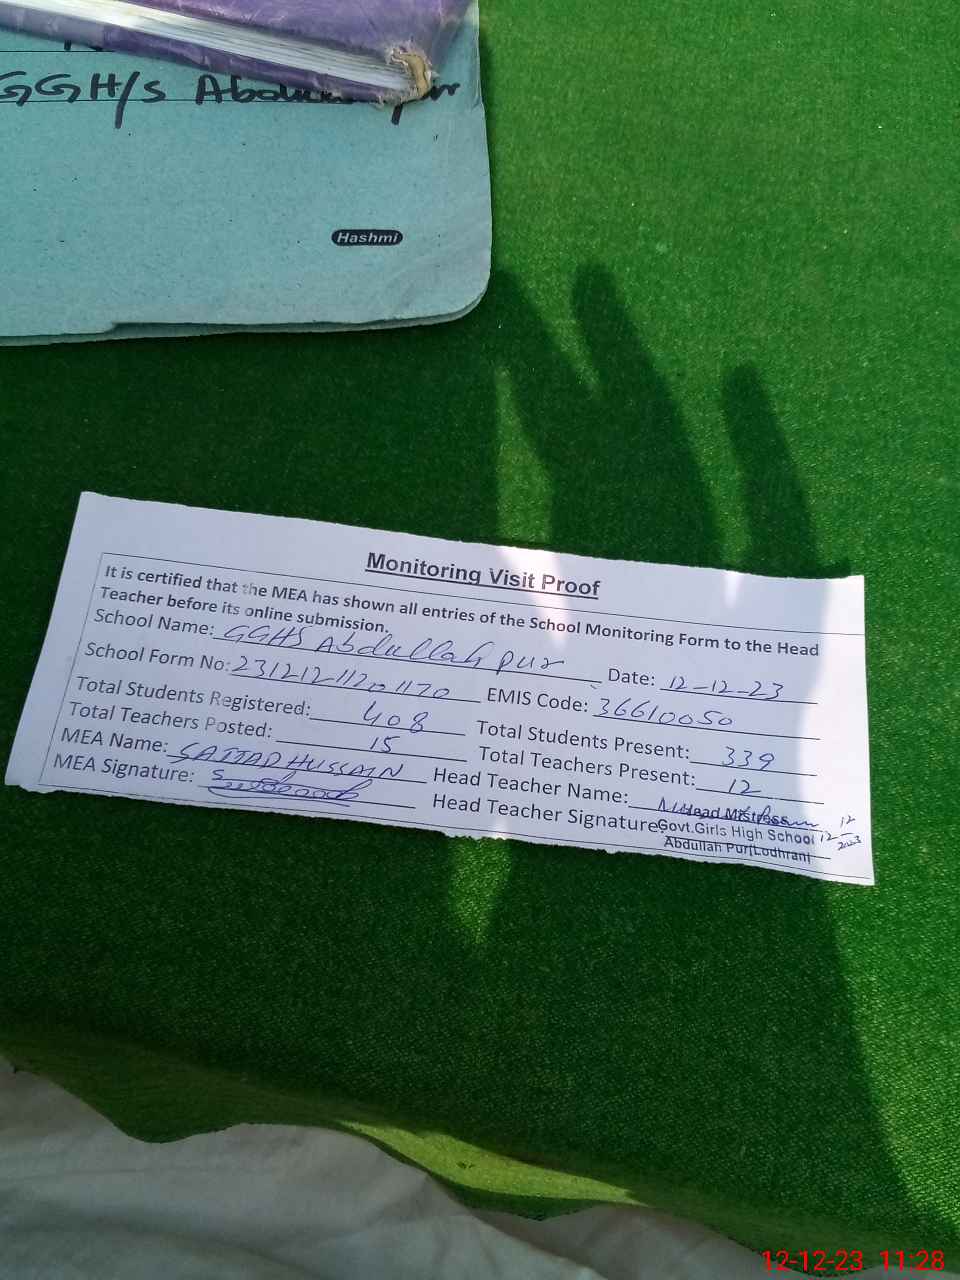 GGH/s
Hashmi
Monitoring Visit Proof
It is certified that the MEA has shown all entries of the School Monitoring Form to the Head
Teacher before its online submission.
School Name: GGHS Abdullah pur Date: 12-12-23
School Form No: 23121211201170 EMIS Code: 36610050
Total Students Registered: 408 Total Students Present: 339
Total Teachers Posted: 15 Total Teachers Present: 12
MEA Name: SAJJAD HUSSAIN Head Teacher Name:
MEA Signature: Head Teacher Signature
Head Mistress
Govt.Girls High School
Abdullah Pur(Lodhran)
12
12
2023
12-12-23 11:28